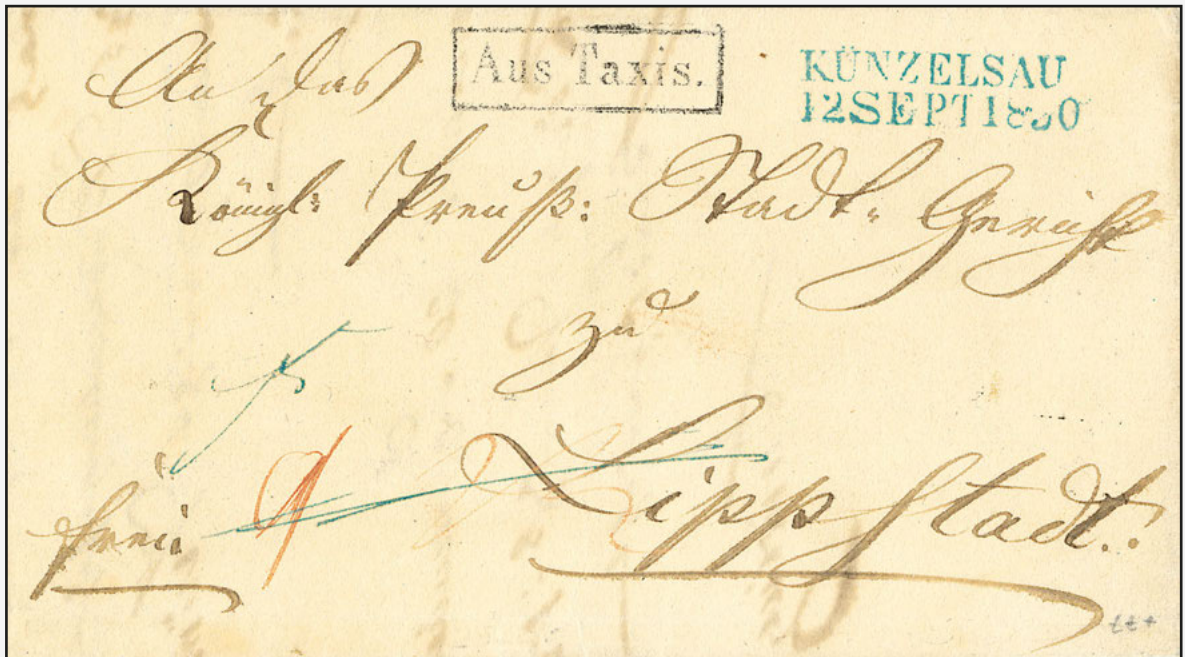 Aus Taxis.
KÜNZELSAU
12 SEPT 18
An das
Königl: Preuß: Stadt-Gericht
zu
Lippstadt.
frei